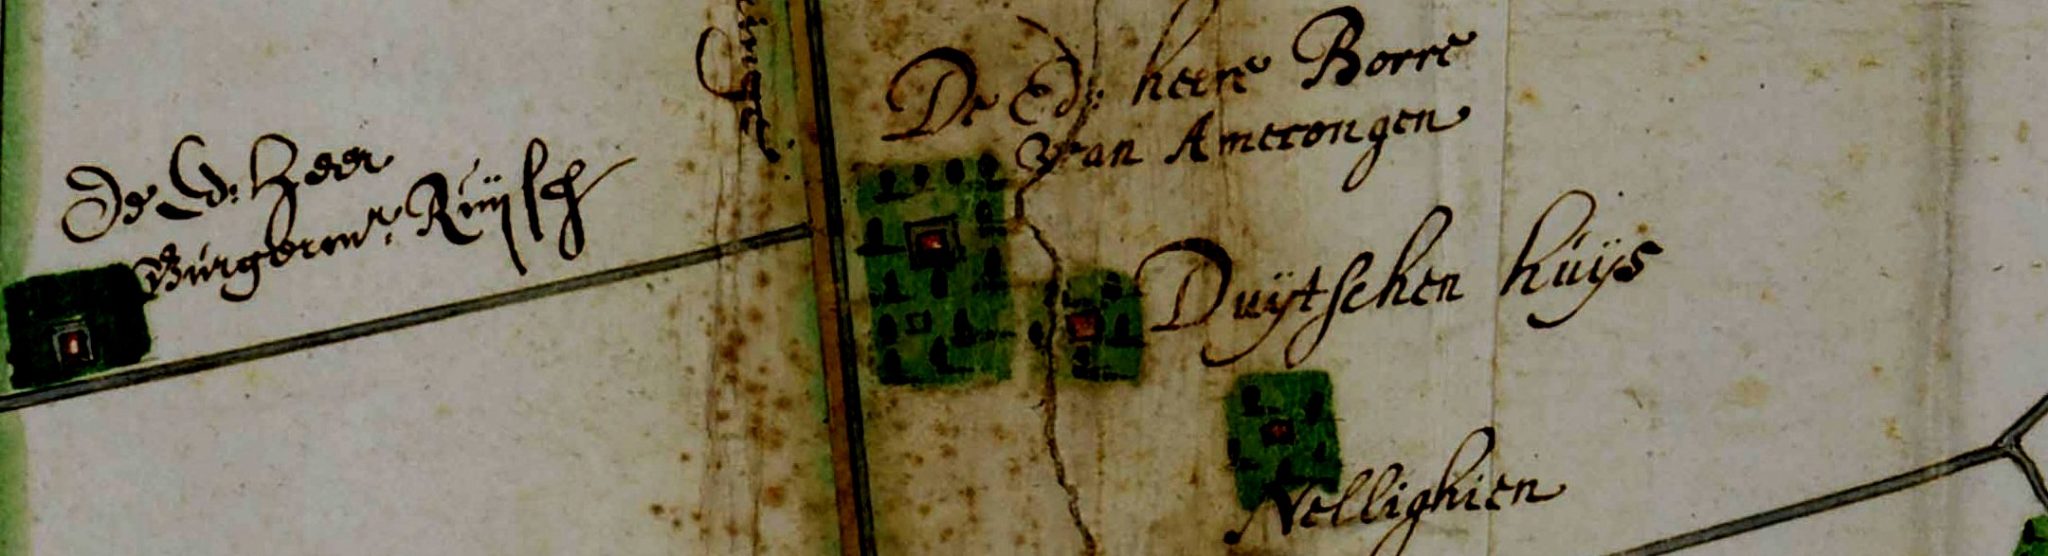 De Ed: heere Borre
Van Amerongen
De Ed: Heer
Burgermr: Ruijsch
Duijtschen huijs
Nellighien